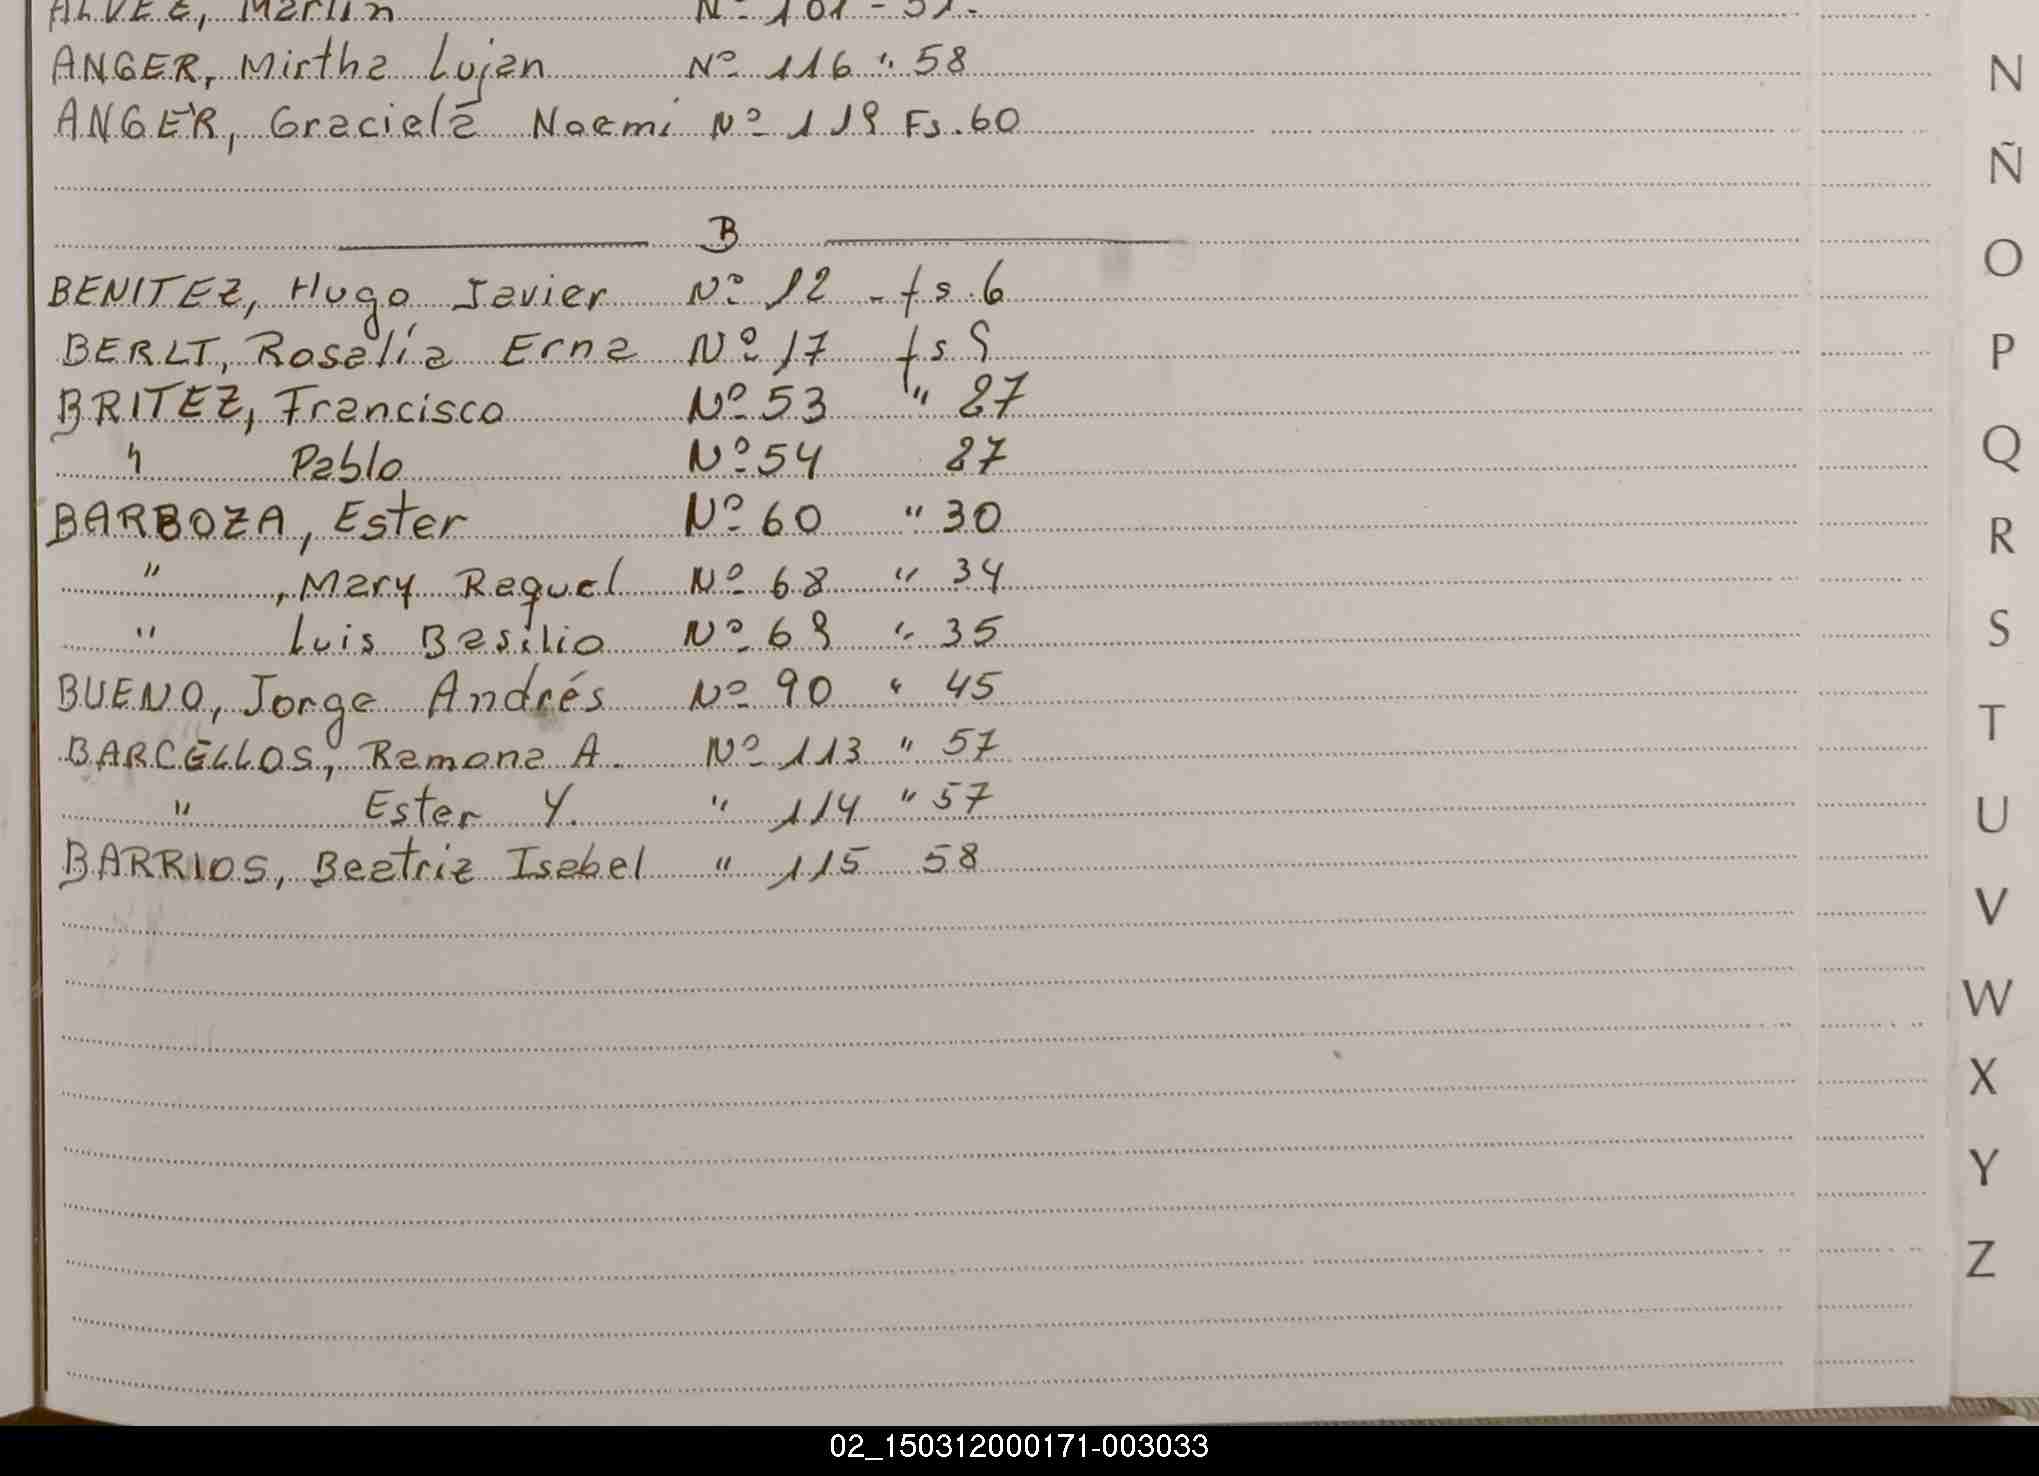 ALVEZ, Marlin Nº 101 - 51.
ANGER, Mirtha Lujan Nº 116 " 58
ANGER, Graciela Noemi Nº 119 Fs. 60
B
BENITEZ, Hugo Javier Nº 12 - fs. 6
BERLT, Rosalía Erna Nº 17 fs 9
BRITEZ, Francisco Nº 53 " 27
" Pablo Nº 54 27
BARBOZA, Ester Nº 60 " 30
" , Mary Raquel Nº 68 " 34
" Luis Basilio Nº 69 " 35
BUENO, Jorge Andrés Nº 90 " 45
BARCELLOS, Ramona A. Nº 113 " 57
" Ester Y. " 114 " 57
BARRIOS, Beatriz Isabel " 115 58
N
Ñ
O
P
Q
R
S
T
U
V
W
X
Y
Z
02_150312000171-003033